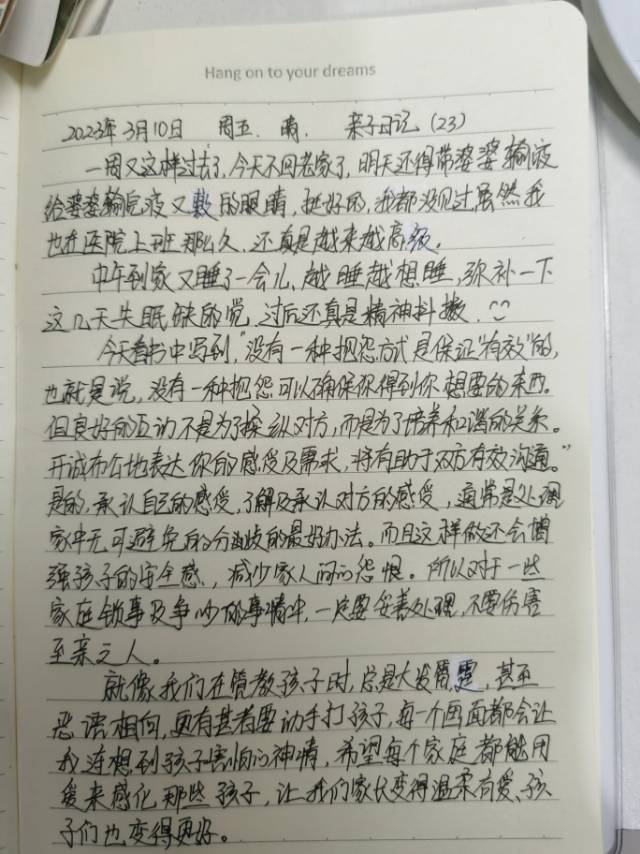 Hang on to your dreams
2023年3月10日 周五. 晴. 亲子日记(23)
一周又这样过去了,今天不回老家了,明天还得带婆婆输液
给婆婆输完液又敷的眼睛,挺好的,我都没见过,虽然我
也在医院上班那么久,还真是越来越高级。
中午到家又睡了一会儿,越睡越想睡,弥补一下
这几天失眠缺的觉,过后还真是精神抖擞.
今天看书中写到,"没有一种抱怨方式是保证"有效"的,
也就是说,没有一种抱怨可以确保你得到你想要的东西。
但良好的互动不是为了操纵对方,而是为了培养和谐的关系。
开诚布公地表达你的感受及需求,将有助于双方有效沟通。"
是的,承认自己的感受,了解及承认对方的感受,通常是处理
家中无可避免的分歧的最好办法。而且这样做还会增
强孩子的安全感,减少家人间的怨恨。所以对于一些
家庭锁事及争吵的事情中,一定要妥善处理,不要伤害
至亲之人。
就像我们在管教孩子时,总是大发雷霆,甚至
恶语相向,更有甚者要动手打孩子,每一个画面都会让
我连想到孩子害怕的神情,希望每个家庭都能用
爱来感化那些孩子,让我们家长变得温柔有爱、孩
子们也变得更好。